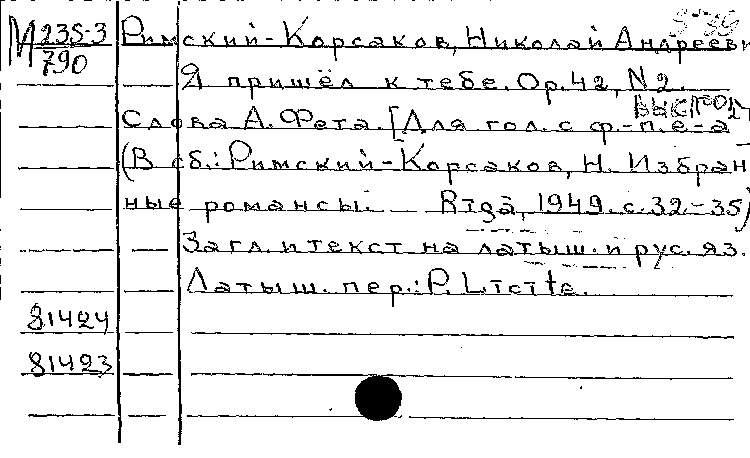 М 235-3
790
Римский-Корсаков, Николай Андрееви
Я пришёл к тебе. Op. 42, N 2.
Слова А. Фета. [Для гол. с ф.-п.е-а
(В сб.: Римский-Корсаков, Н. Избран-
ные романсы. Rīgā, 1949. с. 32-35)
Загл. и текст на латыш. и рус. яз.
Латыш. пер.: P. Līcīte.
81424
81423